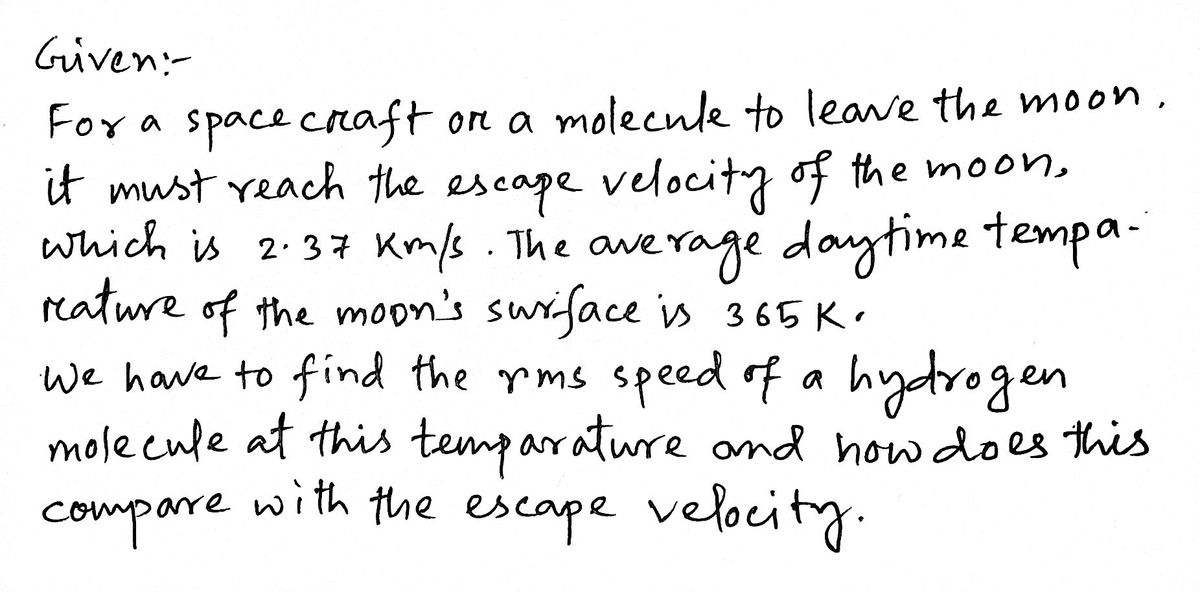 Given:-
For a spacecraft or a molecule to leave the moon,
it must reach the escape velocity of the moon,
which is 2.37 Km/s. The average daytime tempa-
rature of the moon's surface is 365 K.
We have to find the rms speed of a hydrogen
molecule at this temparature and how does this
compare with the escape velocity.